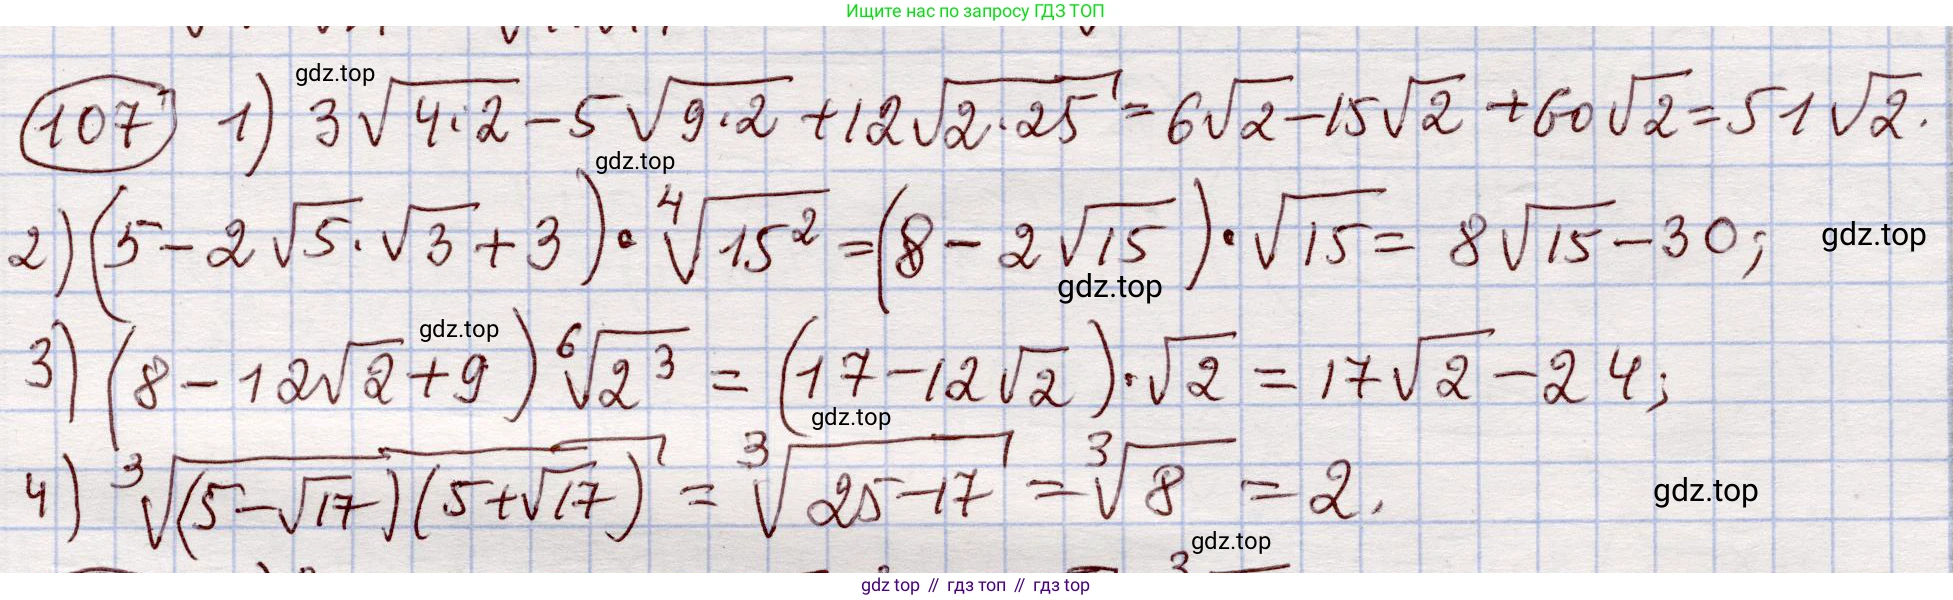 Ищите нас по запросу ГДЗ ТОП
gdz.top
107 1) 3√(4·2) - 5√(9·2) + 12√(2·25) = 6√2 - 15√2 + 60√2 = 51√2.
gdz.top
2) (5 - 2√5·√3 + 3) · ⁴√(15²) = (8 - 2√15) · √15 = 8√15 - 30;
gdz.top
gdz.top
gdz.top
3) (8 - 12√2 + 9) ⁶√(2³) = (17 - 12√2) · √2 = 17√2 - 24;
gdz.top
4) ³√((5 - √17)(5 + √17)) = ³√(25 - 17) = ³√8 = 2.
gdz.top
gdz.top
gdz top // гдз топ // gdz top